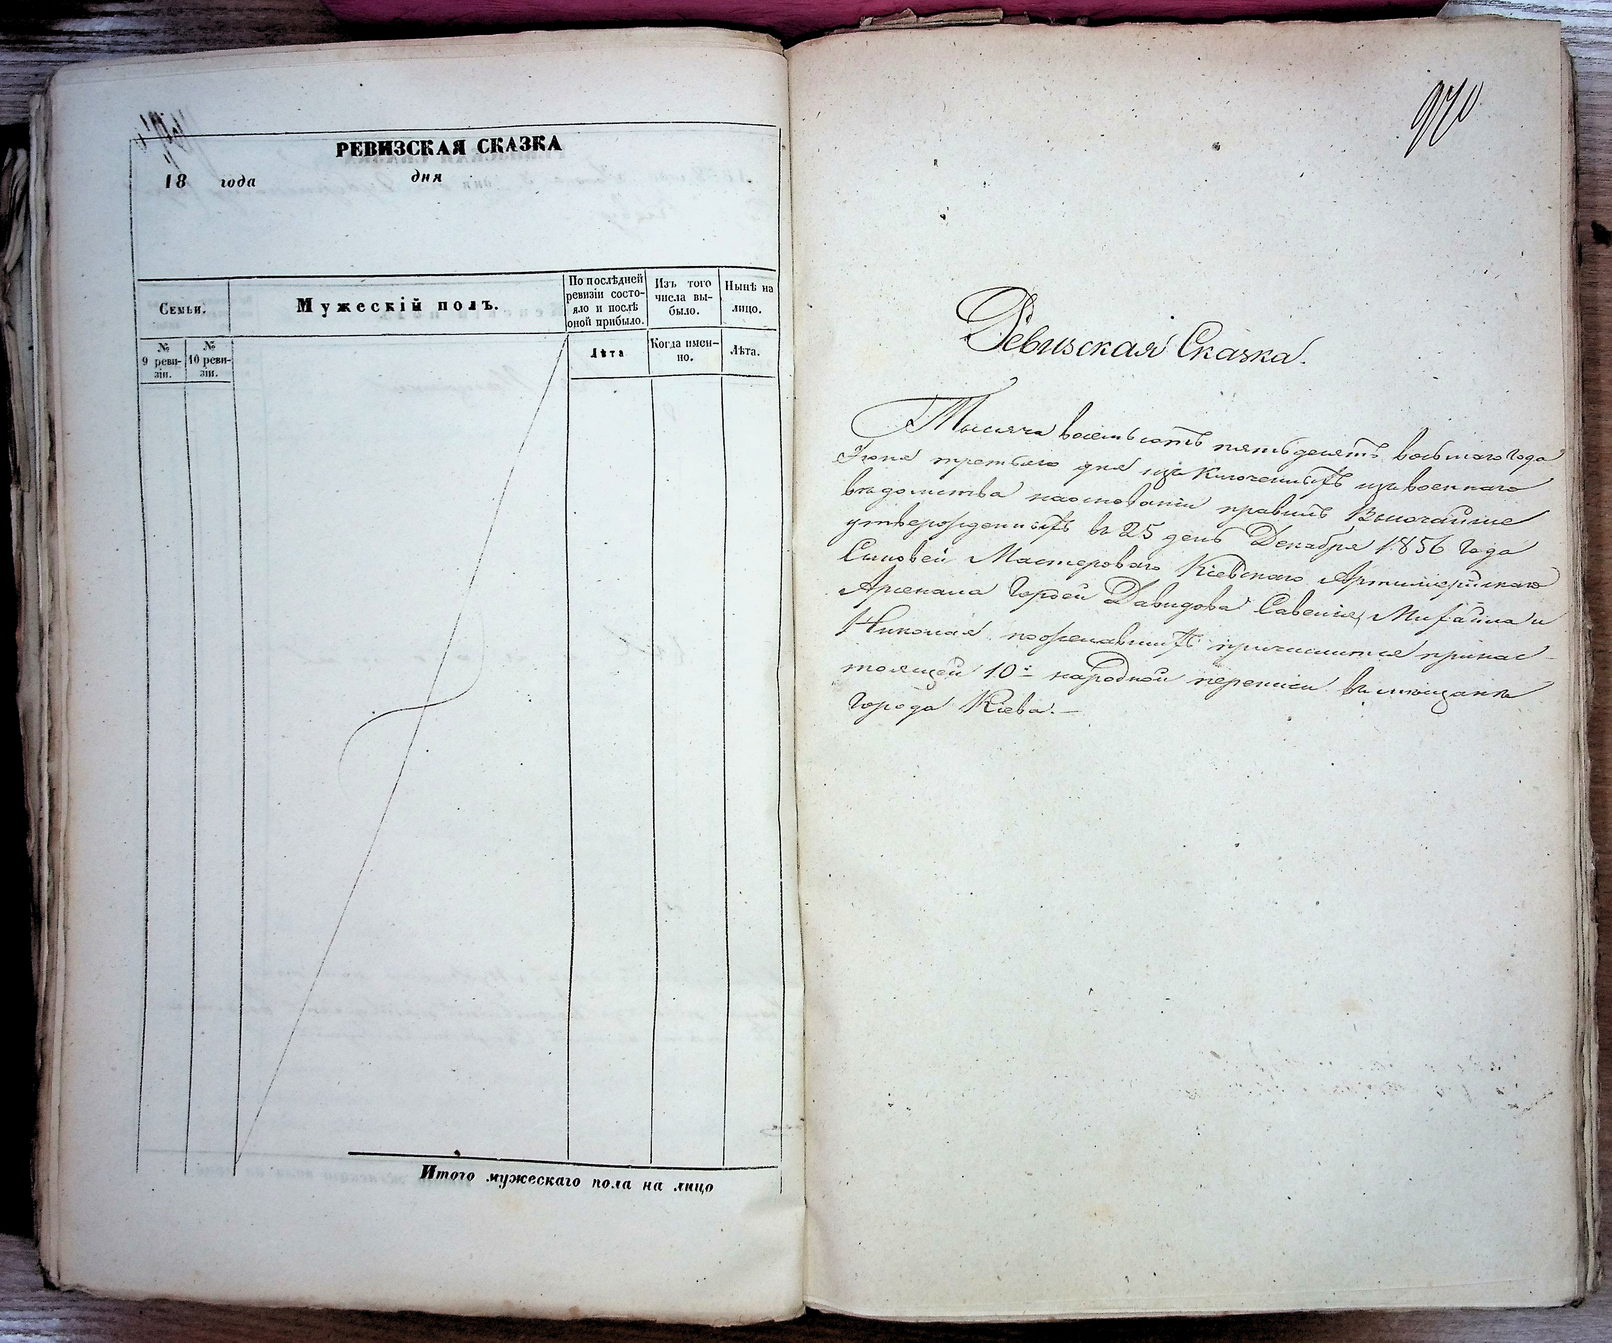 РЕВИЗСКАЯ СКАЗКА
18 года дня
Семьи.
Мужескій полъ.
По послѣдней
ревизіи состо-
яло и послѣ
оной прибыло.
Изъ того
числа вы-
было.
Нынѣ на
лицо.
№
9 реви-
зіи.
№
10 реви-
зіи.
Лѣта
Когда имен-
но.
Лѣта.
Итого мужескаго пола на лицо
970
Ревизская Сказка.
Тысяча восемьсотъ пятьдесятъ восьмаго года
Іюня третьяго дня изключенныхъ изъ военнаго
вѣдомства наосновани правилъ Высочайше
утвержденныхъ въ 25 день Декабря 1856 года
Сыновей Мастероваго Кіевскаго Артиллерійскаго
Арсенала Гордѣя Давидова Савелія, Михайла и
Николая пожелавшихъ причислится принас-
тоящей 10й народной переписи въ мѣщане
города Кіева.